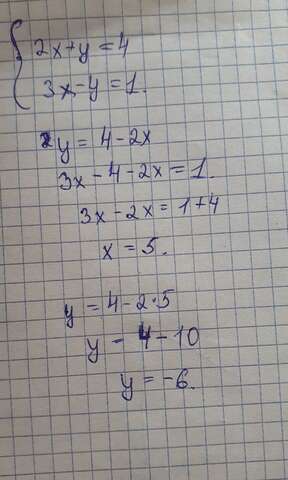 2x+y=4
3x-y=1.
y=4-2x
3x-4-2x=1.
3x-2x=1+4
x=5.
y=4-2·5
y-4-10
y=-6.